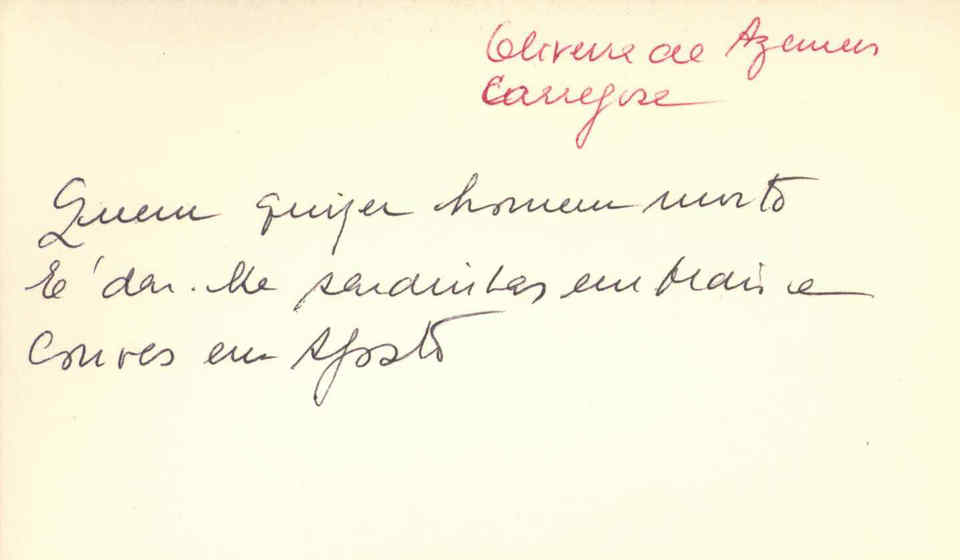 Oliveira de Azemeis
Carregosa
Quem quizer homem morto
É dar-lhe sardinhas em Maio e
Couves em Agosto